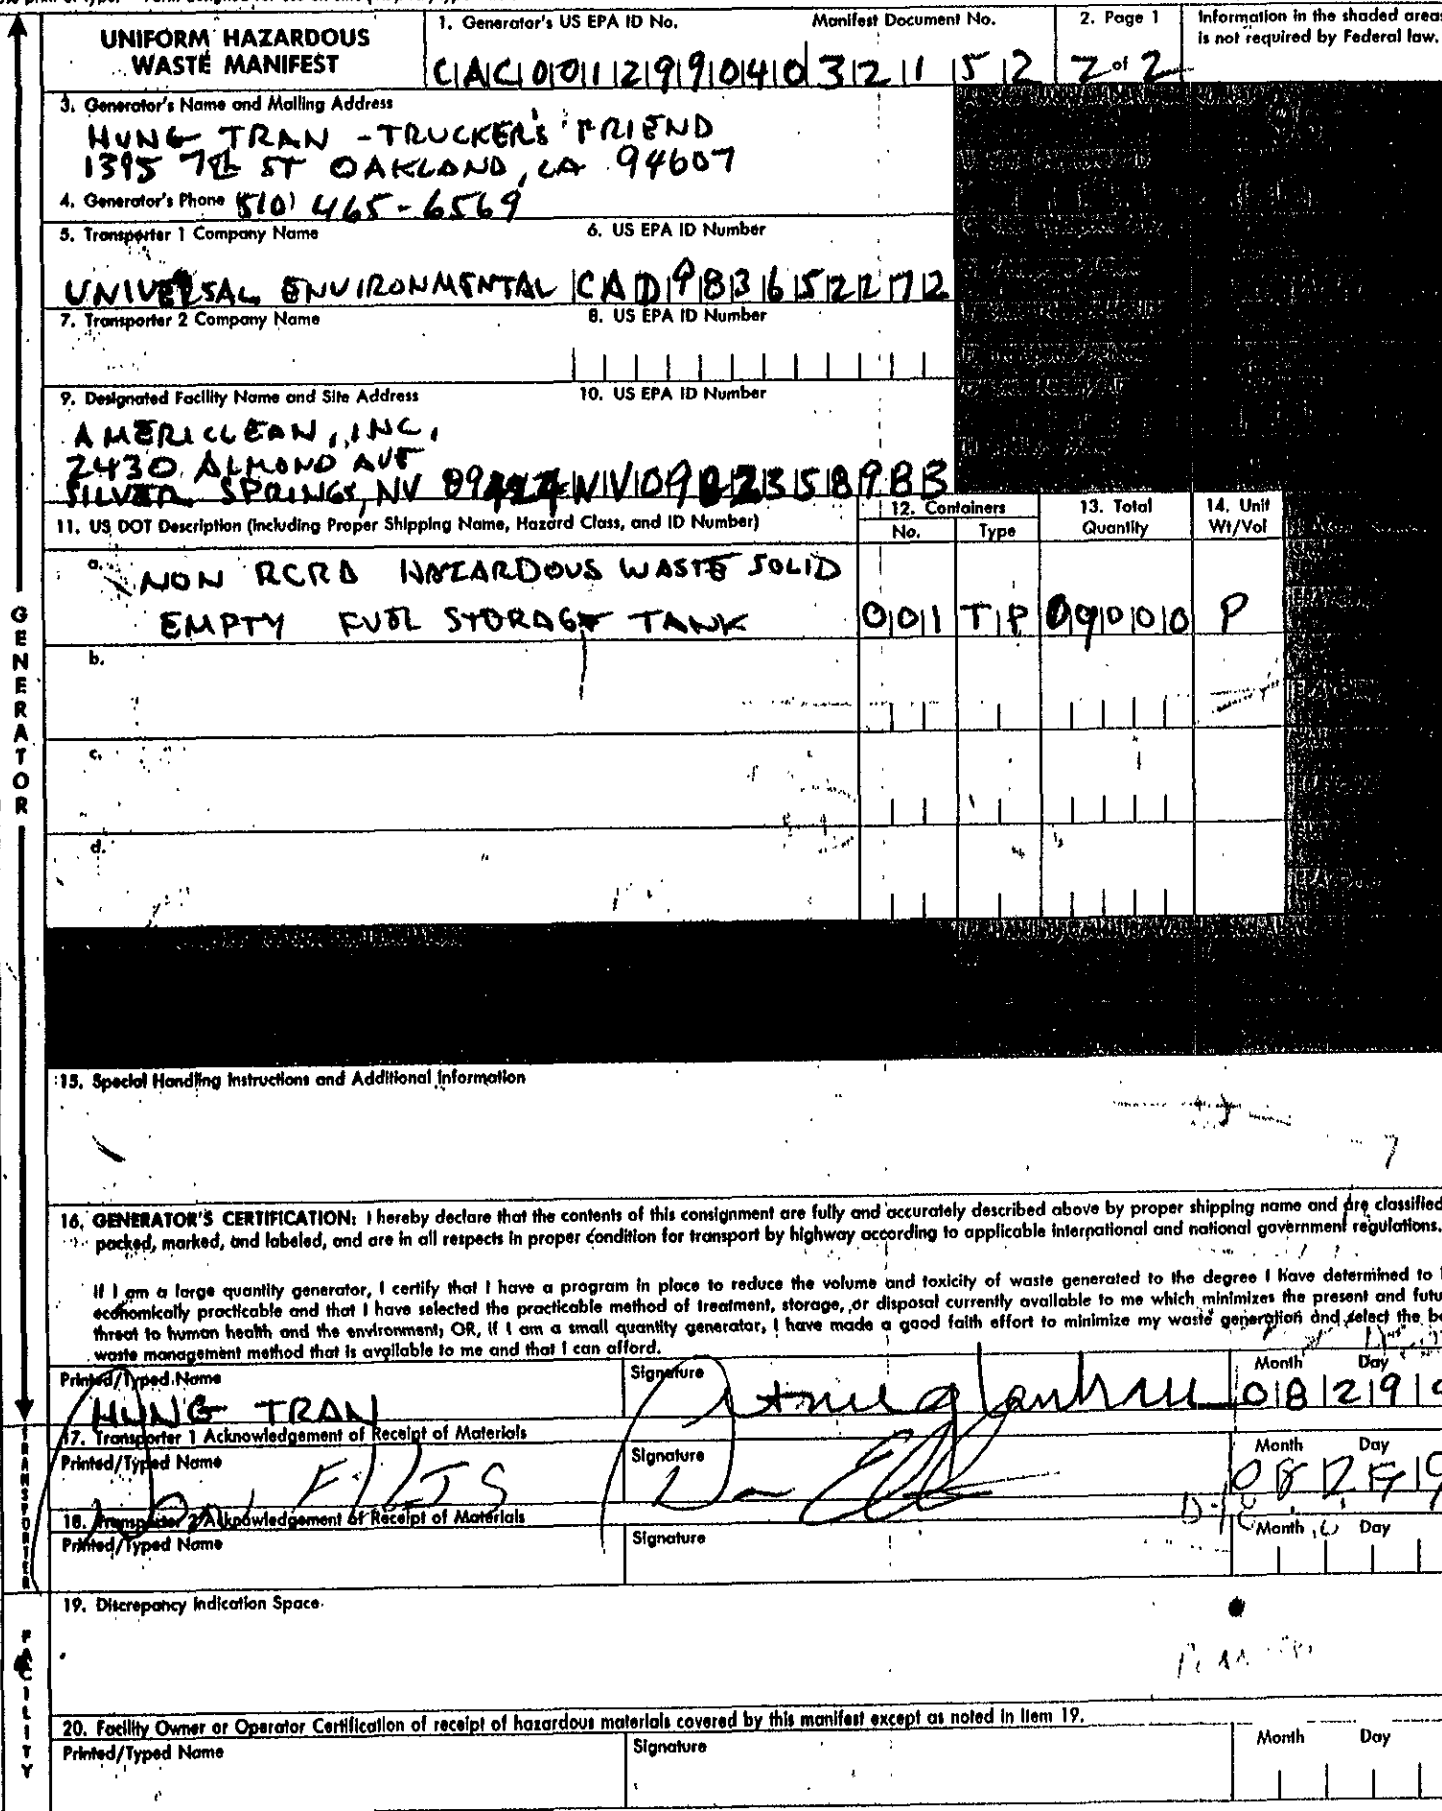 UNIFORM HAZARDOUS
WASTE MANIFEST
1. Generator's US EPA ID No.
Manifest Document No.
CAC001299040 32152
2. Page 1
2 of 2
Information in the shaded areas
is not required by Federal law.
3. Generator's Name and Mailing Address
HUNG TRAN - TRUCKER'S FRIEND
1395 7th ST OAKLAND, CA 94607
4. Generator's Phone (510) 465-6569
5. Transporter 1 Company Name
6. US EPA ID Number
UNIVERSAL ENVIRONMENTAL CAD983652272
7. Transporter 2 Company Name
8. US EPA ID Number
9. Designated Facility Name and Site Address
10. US EPA ID Number
AMERICLEAN, INC,
2430 ALMOND AVE
SILVER SPRINGS, NV
11. US DOT Description (including Proper Shipping Name, Hazard Class, and ID Number)
12. Containers
No.
Type
13. Total
Quantity
14. Unit
Wt/Vol
a. NON RCRA HAZARDOUS WASTE SOLID
EMPTY FUEL STORAGE TANK 001 TP 09000 P
b.
c.
d.
GENERATOR
15. Special Handling Instructions and Additional Information
16. GENERATOR'S CERTIFICATION: I hereby declare that the contents of this consignment are fully and accurately described above by proper shipping name and are classified
packed, marked, and labeled, and are in all respects in proper condition for transport by highway according to applicable international and national government regulations.
If I am a large quantity generator, I certify that I have a program in place to reduce the volume and toxicity of waste generated to the degree I have determined to
economically practicable and that I have selected the practicable method of treatment, storage, or disposal currently available to me which minimizes the present and futu
threat to human health and the environment; OR, if I am a small quantity generator, I have made a good faith effort to minimize my waste generation and select the be
waste management method that is available to me and that I can afford.
Printed/Typed Name
HUNG TRAN
Signature
Month Day
08 29
17. Transporter 1 Acknowledgement of Receipt of Materials
Printed/Typed Name
Signature
Month Day
18. Transporter 2 Acknowledgement of Receipt of Materials
Printed/Typed Name
Signature
Month Day
TRANSPORTER
19. Discrepancy Indication Space
FACILITY
20. Facility Owner or Operator Certification of receipt of hazardous materials covered by this manifest except as noted in Item 19.
Printed/Typed Name
Signature
Month Day